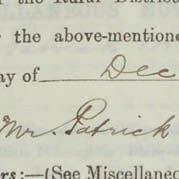 the Rural District
the above-mentione
ay of Dec
Mr. Patrick
rs:—(See Miscellaneo